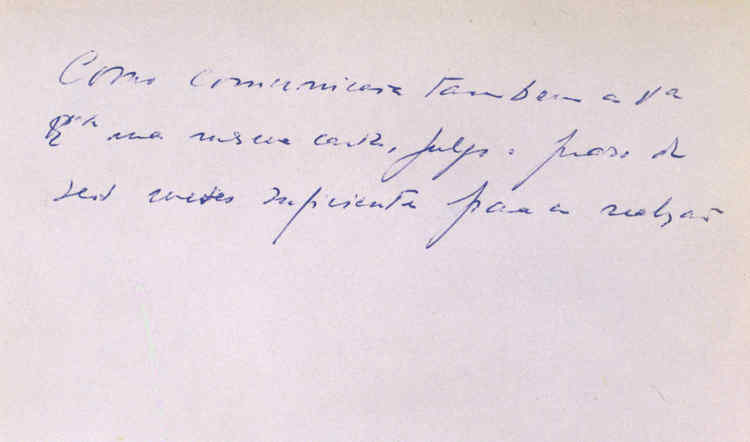 Como comunicara tambem a Va
na mesma carta, julgo o prazo de
seis meses suficiente para a realização